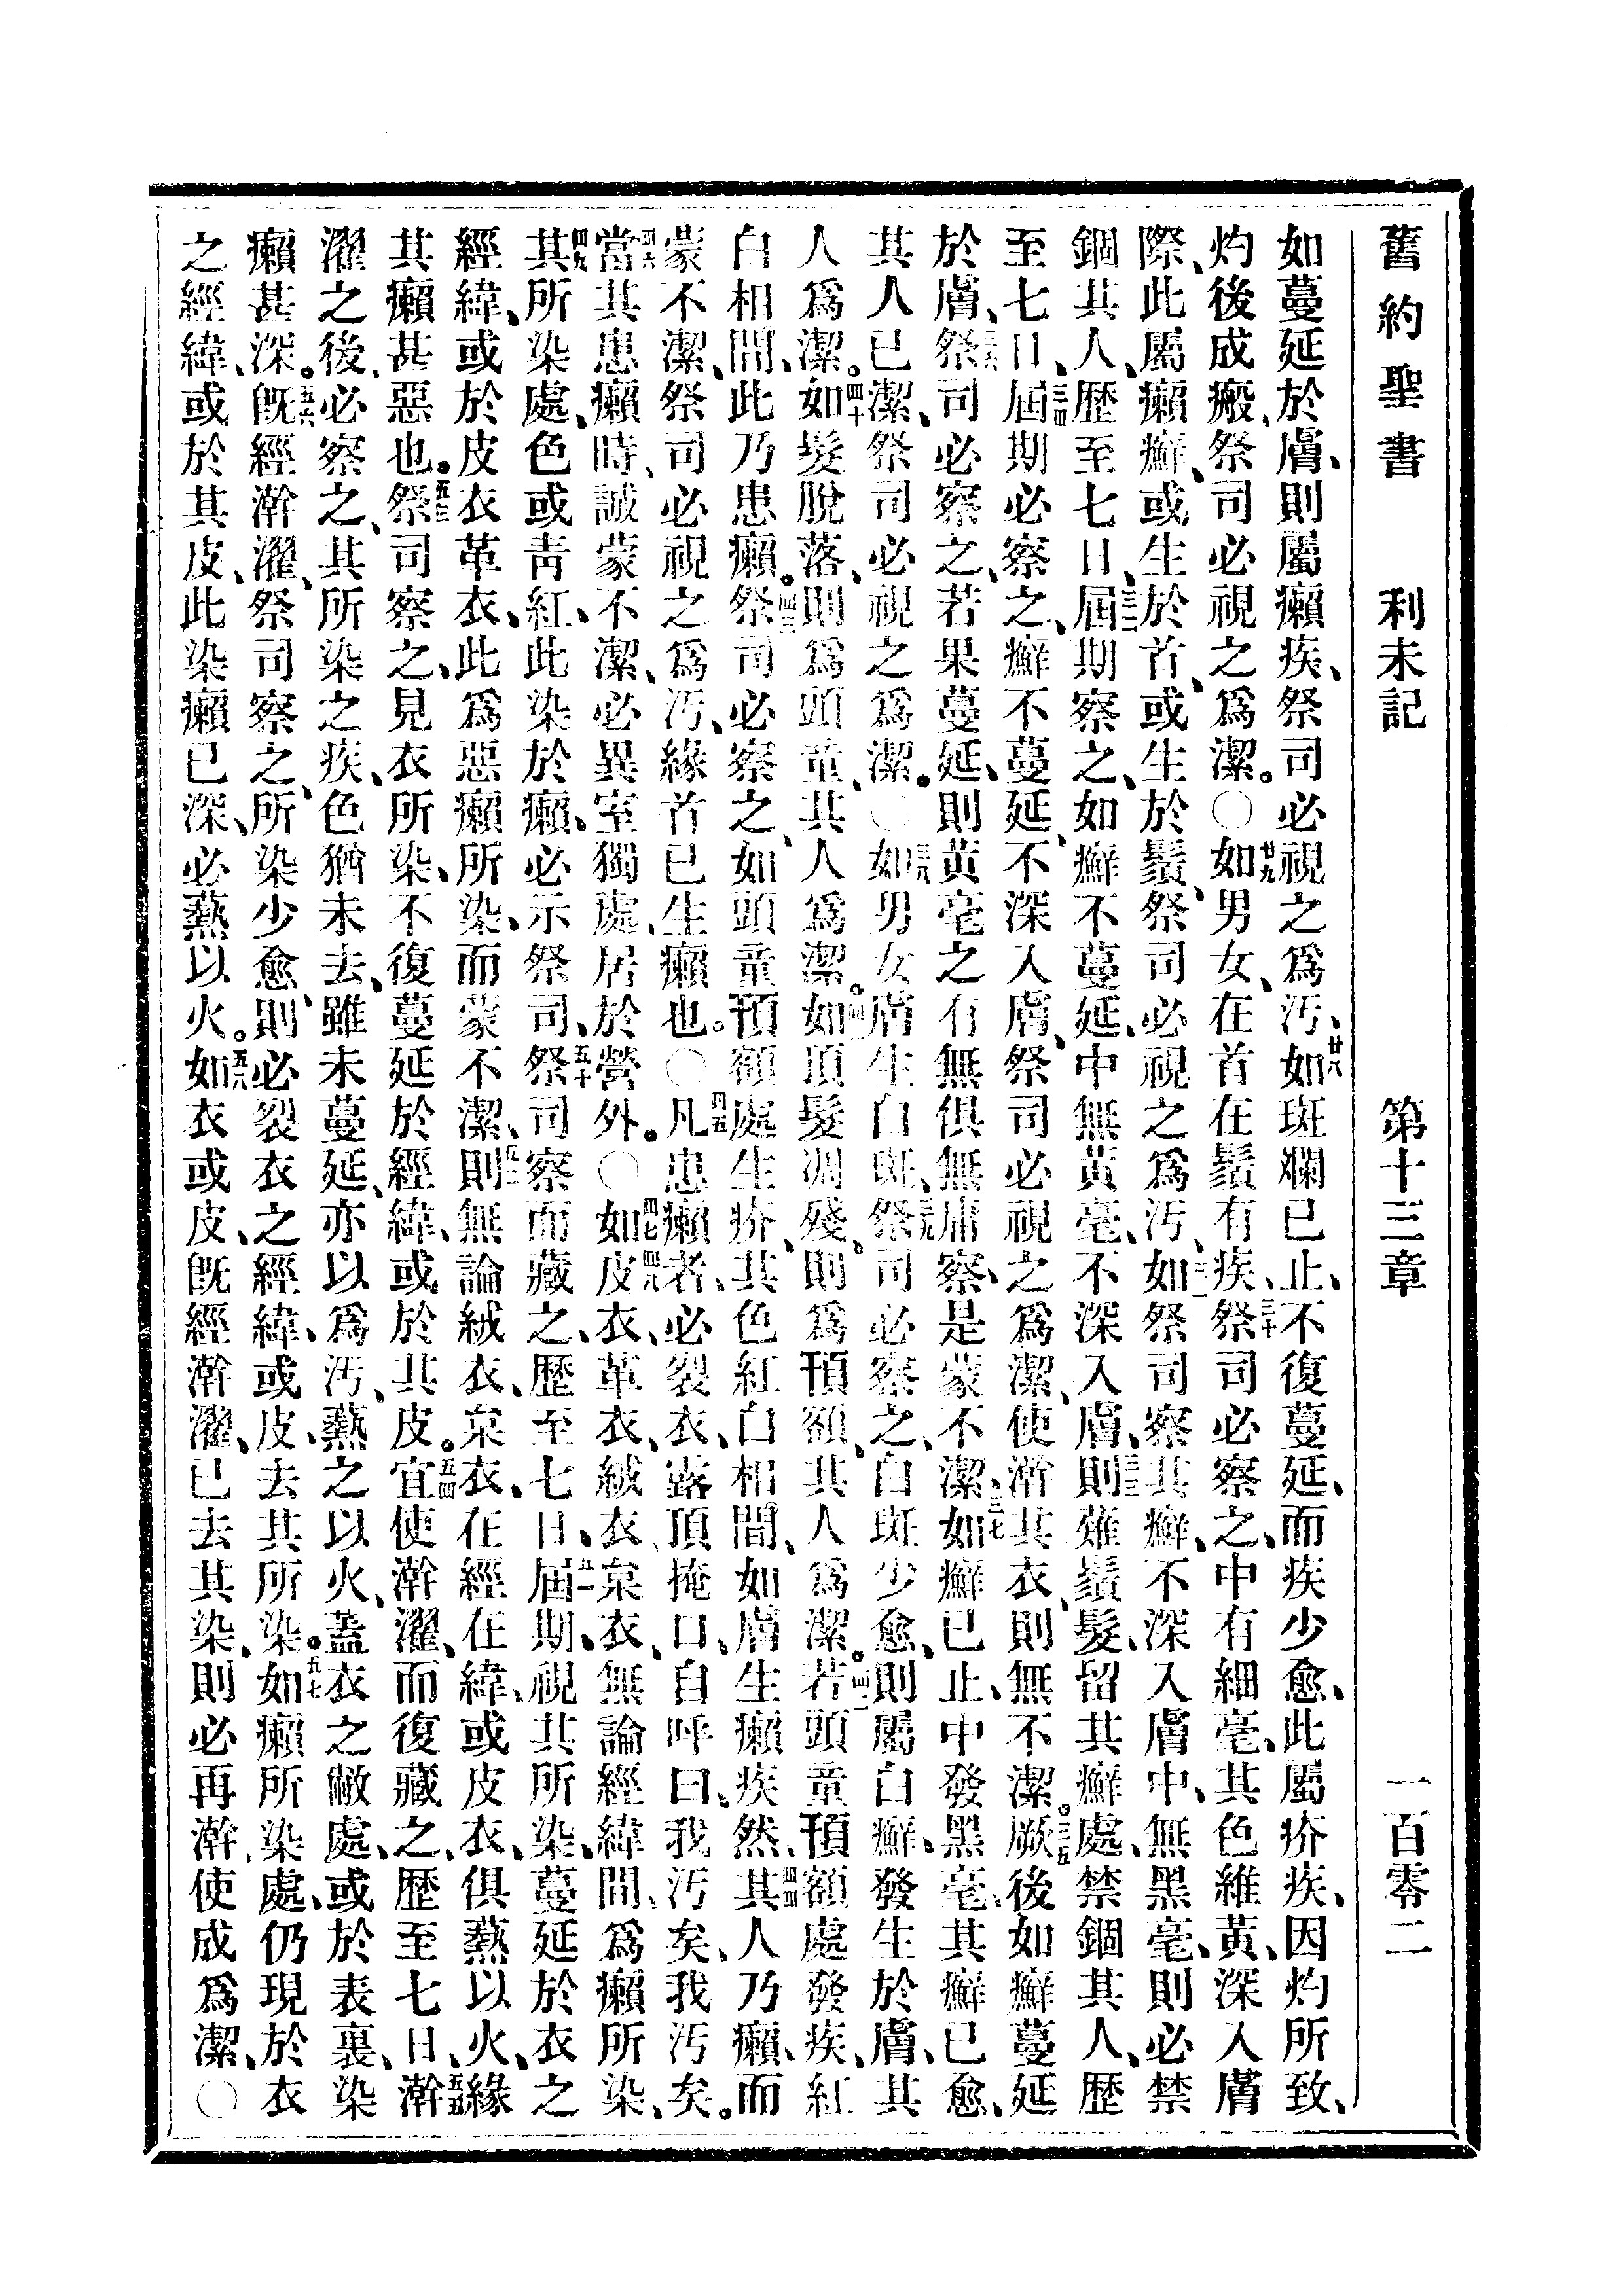 舊約聖書　利未記　第十三章　一百零二
如蔓延於膚、則屬癩疾、祭司必視之爲汚、廿八如斑斕已止、不復蔓延、而疾少愈、此屬疥疾、因灼所致、
灼後成瘢、祭司必視之爲潔。〇廿九如男女、在首在鬚有疾、三十祭司必察之、中有細毫、其色維黃、深入膚
際、此屬癩癬、或生於首、或生於鬚、祭司必視之爲汚、三一如祭司察其癬、不深入膚中、無黑毫、則必禁
錮其人、歷至七日、三二屆期察之、如癬不蔓延、中無黃毫、不深入膚、三三則薙鬚髮、留其癬處、禁錮其人、歷
至七日、三四屆期必察之、癬不蔓延、不深入膚、祭司必視之爲潔、使澣其衣、則無不潔。三五厥後如癬蔓延
於膚、三六祭司必察之、若果蔓延、則黃毫之有無俱無庸察、是蒙不潔、三七如癬已止、中發黑毫、其癬已愈、
其人已潔、祭司必視之爲潔。〇三八如男女膚生白斑、三九祭司必察之、白斑少愈、則屬白癬、發生於膚、其
人爲潔。四十如髮脫落、則爲頭童、其人爲潔。四一如頂髮凋殘、則爲頇額、其人爲潔。四二若頭童頇額處發疾、紅
白相間、此乃患癩。四三祭司必察之、如頭童頇額處生疥、其色紅白相間、如膚生癩疾然、四四其人乃癩、而
蒙不潔、祭司必視之爲汚、緣首已生癩也。〇四五凡患癩者、必裂衣、露頂掩口、自呼曰、我汚矣、我汚矣。
四六當其患癩時、誠蒙不潔、必異室獨處、居於營外。〇四七如皮四八衣、革衣、絨衣、枲衣、無論經緯間、爲癩所染、
四九其所染處、色或靑紅、此染於癩、必示祭司、五十祭司察而藏之、歷至七日、五一屆期、視其所染、蔓延於衣之
經緯、或於皮衣革衣、此爲惡癩所染、而蒙不潔、五二則無論絨衣、枲衣、在經在緯、或皮衣、俱爇以火、緣
其癩甚惡也。五三祭司察之、見衣所染、不復蔓延於經緯、或於其皮。五四宜使澣濯、而復藏之、歷至七日、五五澣
濯之後、必察之、其所染之疾、色猶未去、雖未蔓延、亦以爲汚、爇之以火、蓋衣之敝處、或於表裏、染
癩甚深。五六旣經澣濯、祭司察之、所染少愈、則必裂衣之經緯、或皮、去其所染。五七如癩所染處、仍現於衣
之經緯、或於其皮、此染癩已深、必爇以火。五八如衣或皮、旣經澣濯、已去其染、則必再澣、使成爲潔、〇